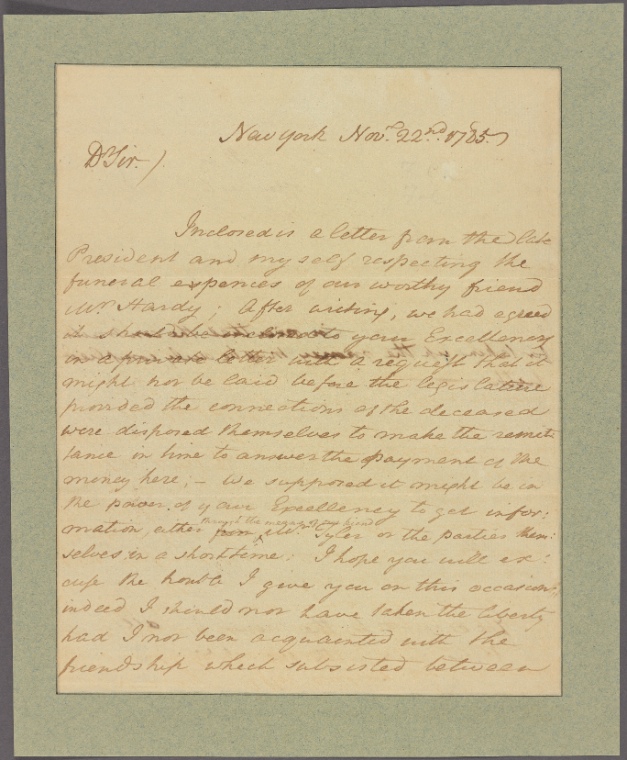 New York Nov.r 22nd. 1785.
Dr Sir.
Inclosed is a letter from the late
President and my self respecting the
funeral expences of our worthy friend
Mr Hardy; After writing, we had agreed
it should be inclosed to your Excellency
in a private letter with a request that it
might not be laid before the legislature
provided the connections of the deceased
were disposed themselves to make the remit
tance in time to answer the payment of the
money here;- we supposed it might be in
the power of your Excellency to get infor:
through the means of my friend
mation, either from Mr. Tyler or the parties them:
selves in a short time: I hope you will ex:
cuse the trouble I give you on this occasion,
indeed I should not have taken the liberty
had I not been acquainted with the
friendship which subsisted between